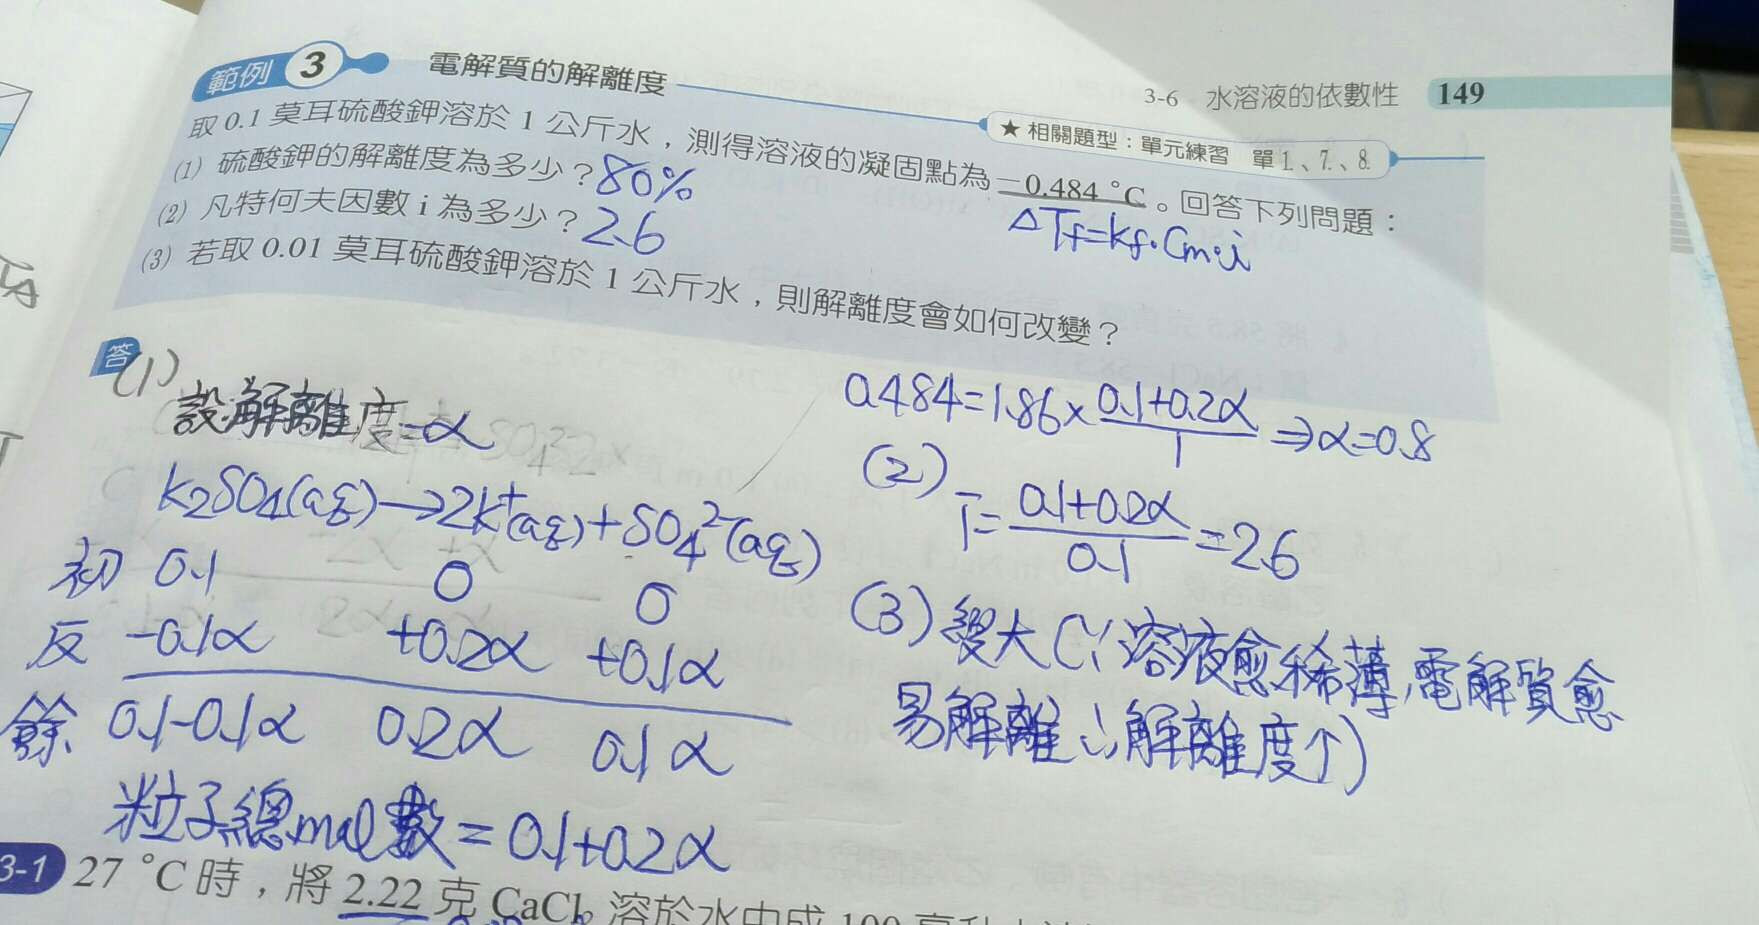 3-6 水溶液的依數性 149
範例 3 電解質的解離度
★相關題型：單元練習 單1、7、8
取 0.1 莫耳硫酸鉀溶於 1 公斤水，測得溶液的凝固點為 −0.484 °C。回答下列問題：
(1) 硫酸鉀的解離度為多少？80%
(2) 凡特何夫因數 i 為多少？2.6
ΔTf=kf·Cm·i
(3) 若取 0.01 莫耳硫酸鉀溶於 1 公斤水，則解離度會如何改變？
答
(1)
設解離度=α
K2SO4(aq)→2K+(aq)+SO4 2-(aq)
初 0.1 0 0
反 -0.1α +0.2α +0.1α
餘 0.1-0.1α 0.2α 0.1α
粒子總mol數=0.1+0.2α
0.484=1.86×(0.1+0.2α)/1 ⇒α=0.8
(2) i=(0.1+0.2α)/0.1=2.6
(3) 變大(∵溶液愈稀薄,電解質愈
易解離∴解離度↑)
3-1 27 °C 時，將 2.22 克 CaCl2 溶於水中成 100